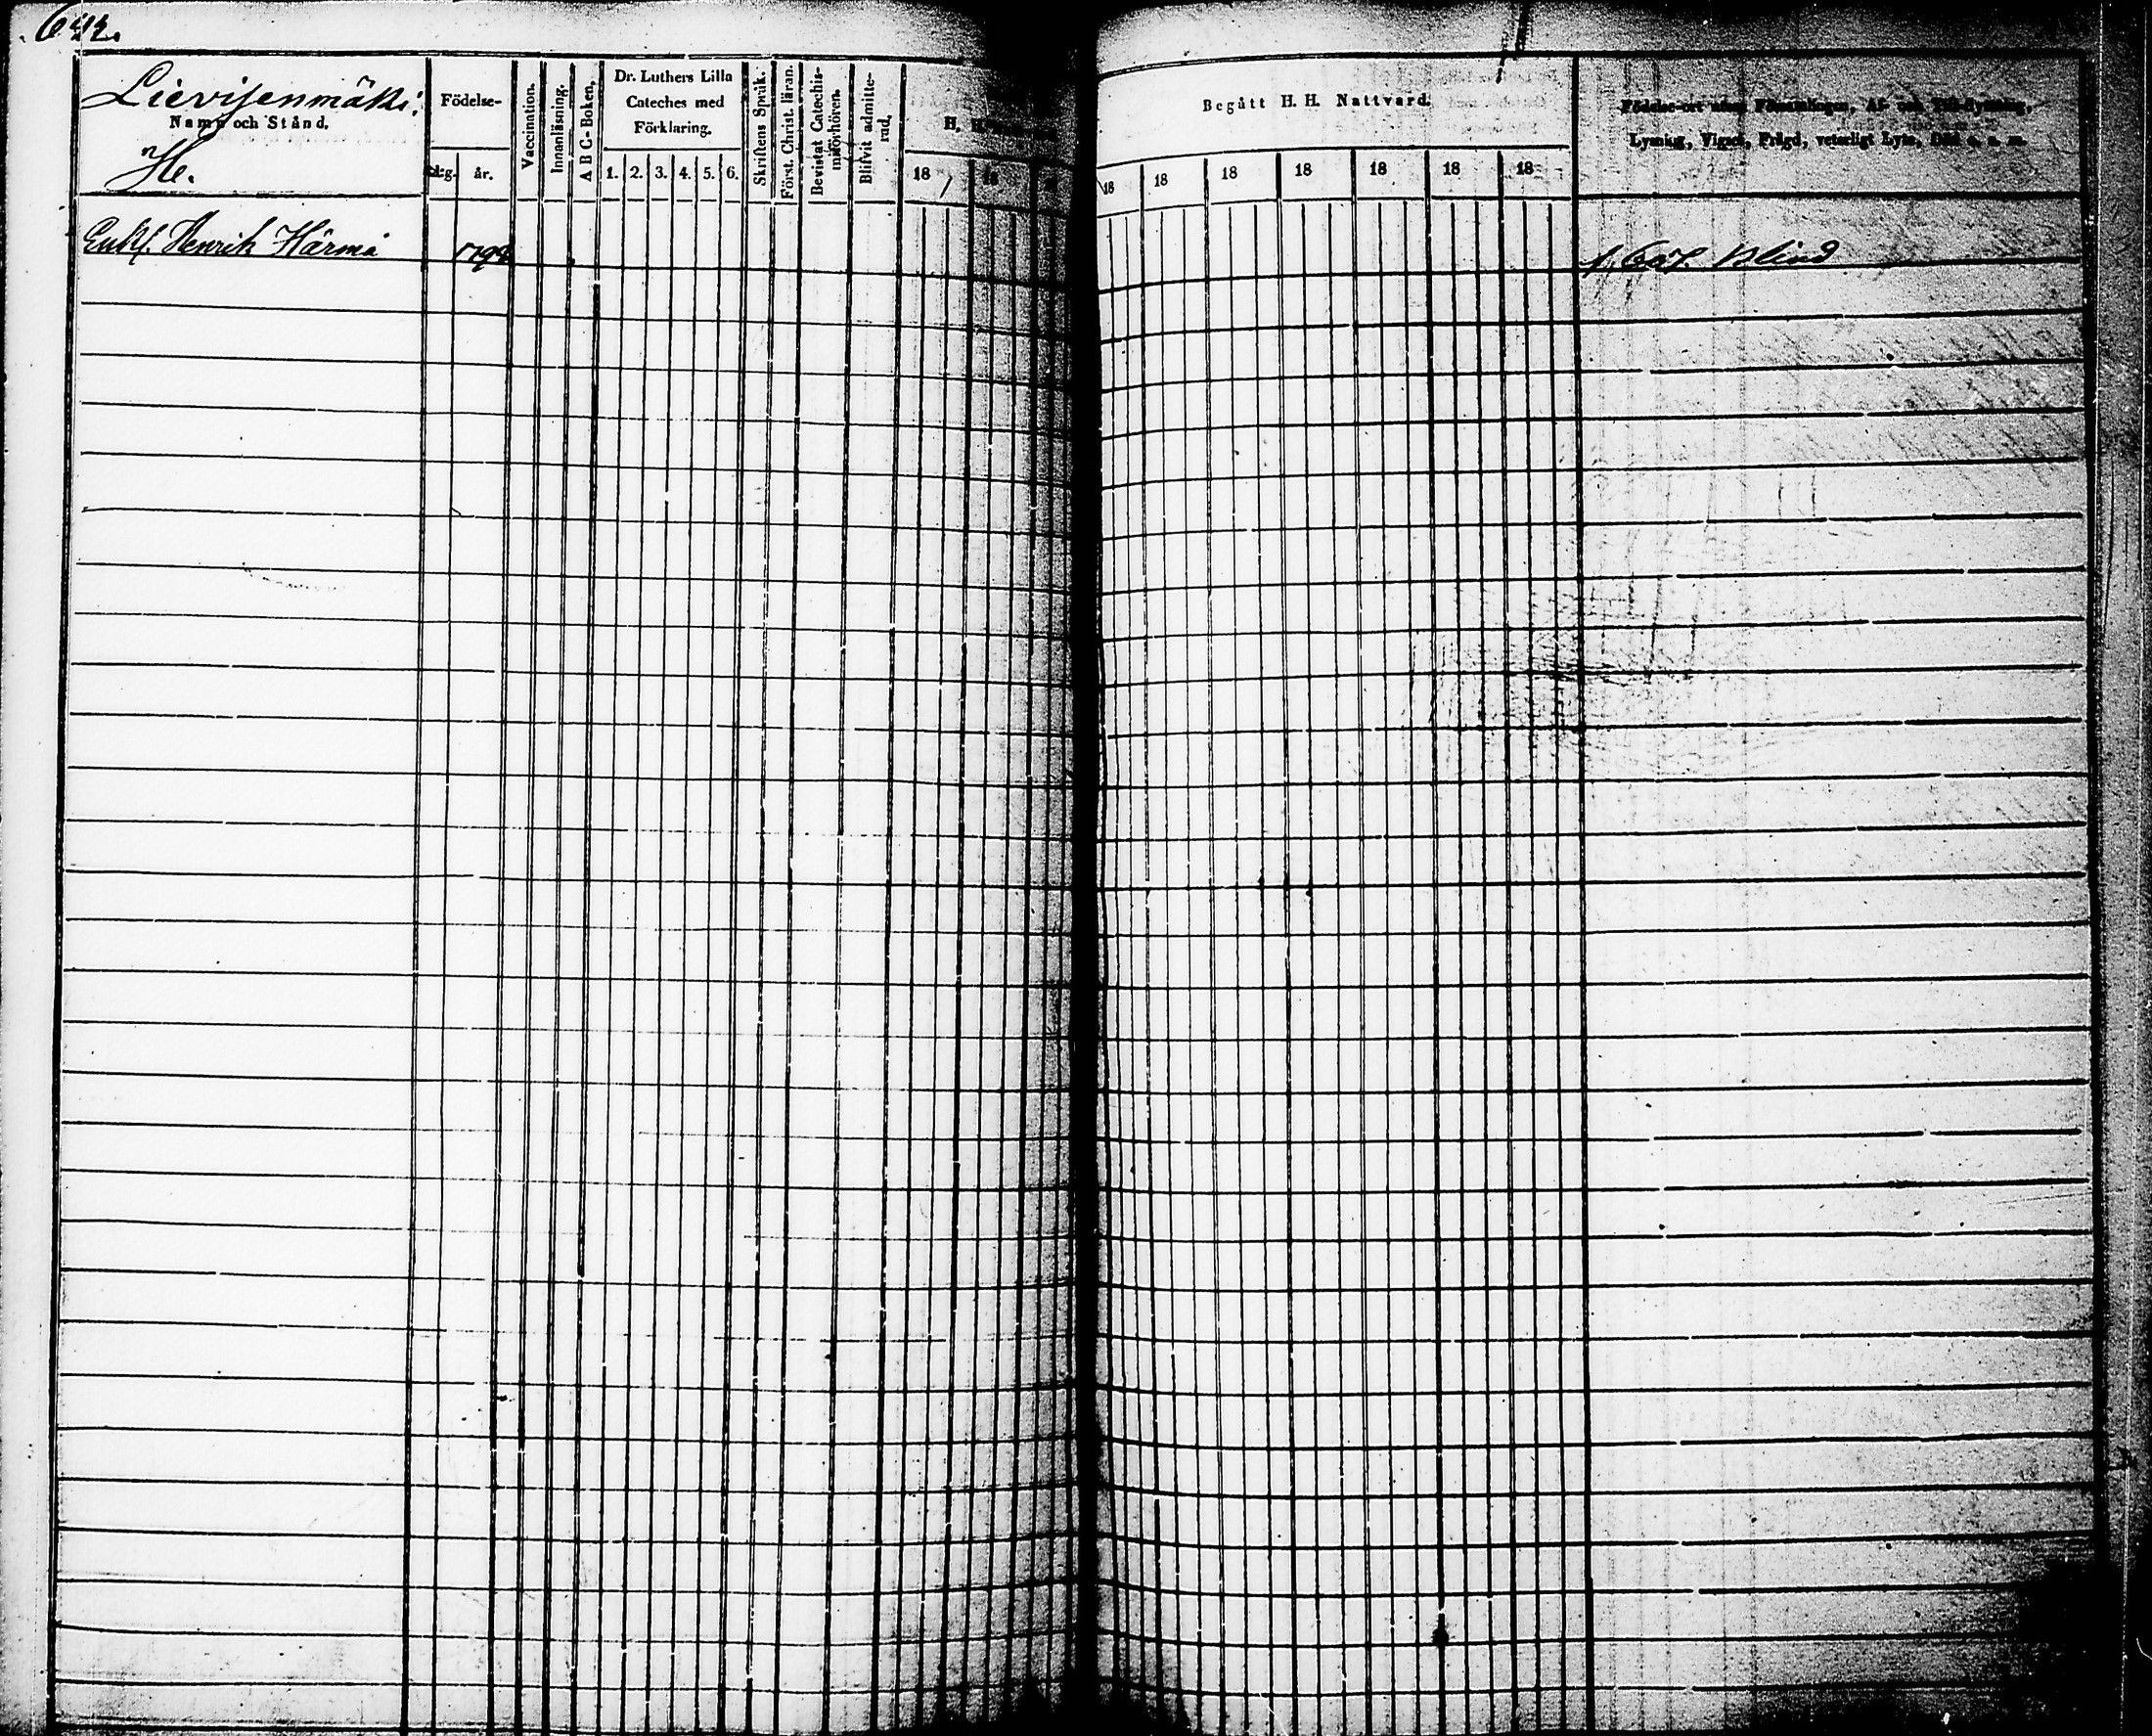 Lievisenmäki:
Namn och Stånd.
He.
Födelse-
dag.
år.
Vaccination.
Innanläsning.
A B C-Boken.
Dr. Luthers Lilla
Cateches med
Förklaring.
1. 2. 3. 4. 5. 6.
Skriftens Språk.
Först. Christ. läran.
Bevistat Catechis-
miförhören.
Blifvit admitte-
rad.
H. H.
18
Begått H. H. Nattvard.
18 18 18 18 18 18 18
Födelse-ort utom Församlingen, Af- och Till-flyttning,
Lysning, Vigsel, Frägd, veterligt Lyte, Död o. s. m.
Enkl. Henrik Härmä
Blind